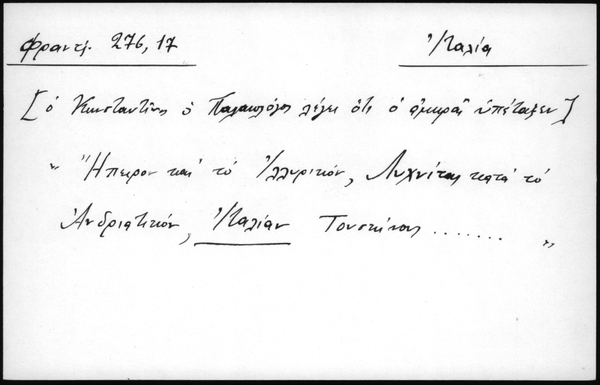 Φραντζ. 276, 17 Ἰταλία
[ὁ Κωνσταντῖνος ὁ Παλαιολόγος λέγει ὅτι ὁ ἀμηρᾶς ὑπέταξεν]
" Ἤπειρον καὶ τὸ Ἰλλυρικόν, Λυχνίτας κατὰ τὸ
Ἀνδριατικόν, Ἰταλίαν Τουσκίνους ....... "